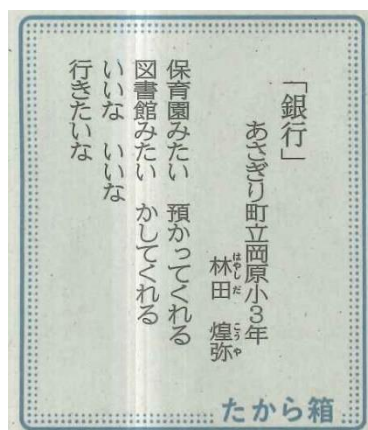 「銀行」
あさぎり町立岡原小3年
林田 煌弥
はやしだ こうや
保育園みたい 預かってくれる
図書館みたい かしてくれる
いいな いいな
行きたいな
たから箱